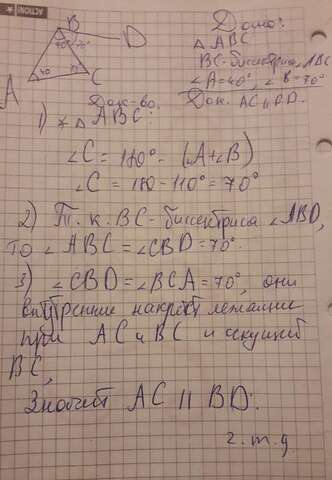 ACTION!
B
D
70° 70°
40
C
A
Дано:
△ ABC
BC - биссектриса ABC
∠A = 40°, ∠B = 70°
Док. AC ∥ BD.
Док-во.
1) △ ABC:
∠C = 180° - (A+∠B)
∠C = 180 - 110° = 70°
2) Т. к. BC - биссектриса ∠ABD,
то ∠ABC = ∠CBD = 70°.
3) ∠CBD = ∠BCA = 70°, они
внутренние накрест лежащие
при AC и BC и секущей
BC,
Значит AC || BD.
ч. т. д